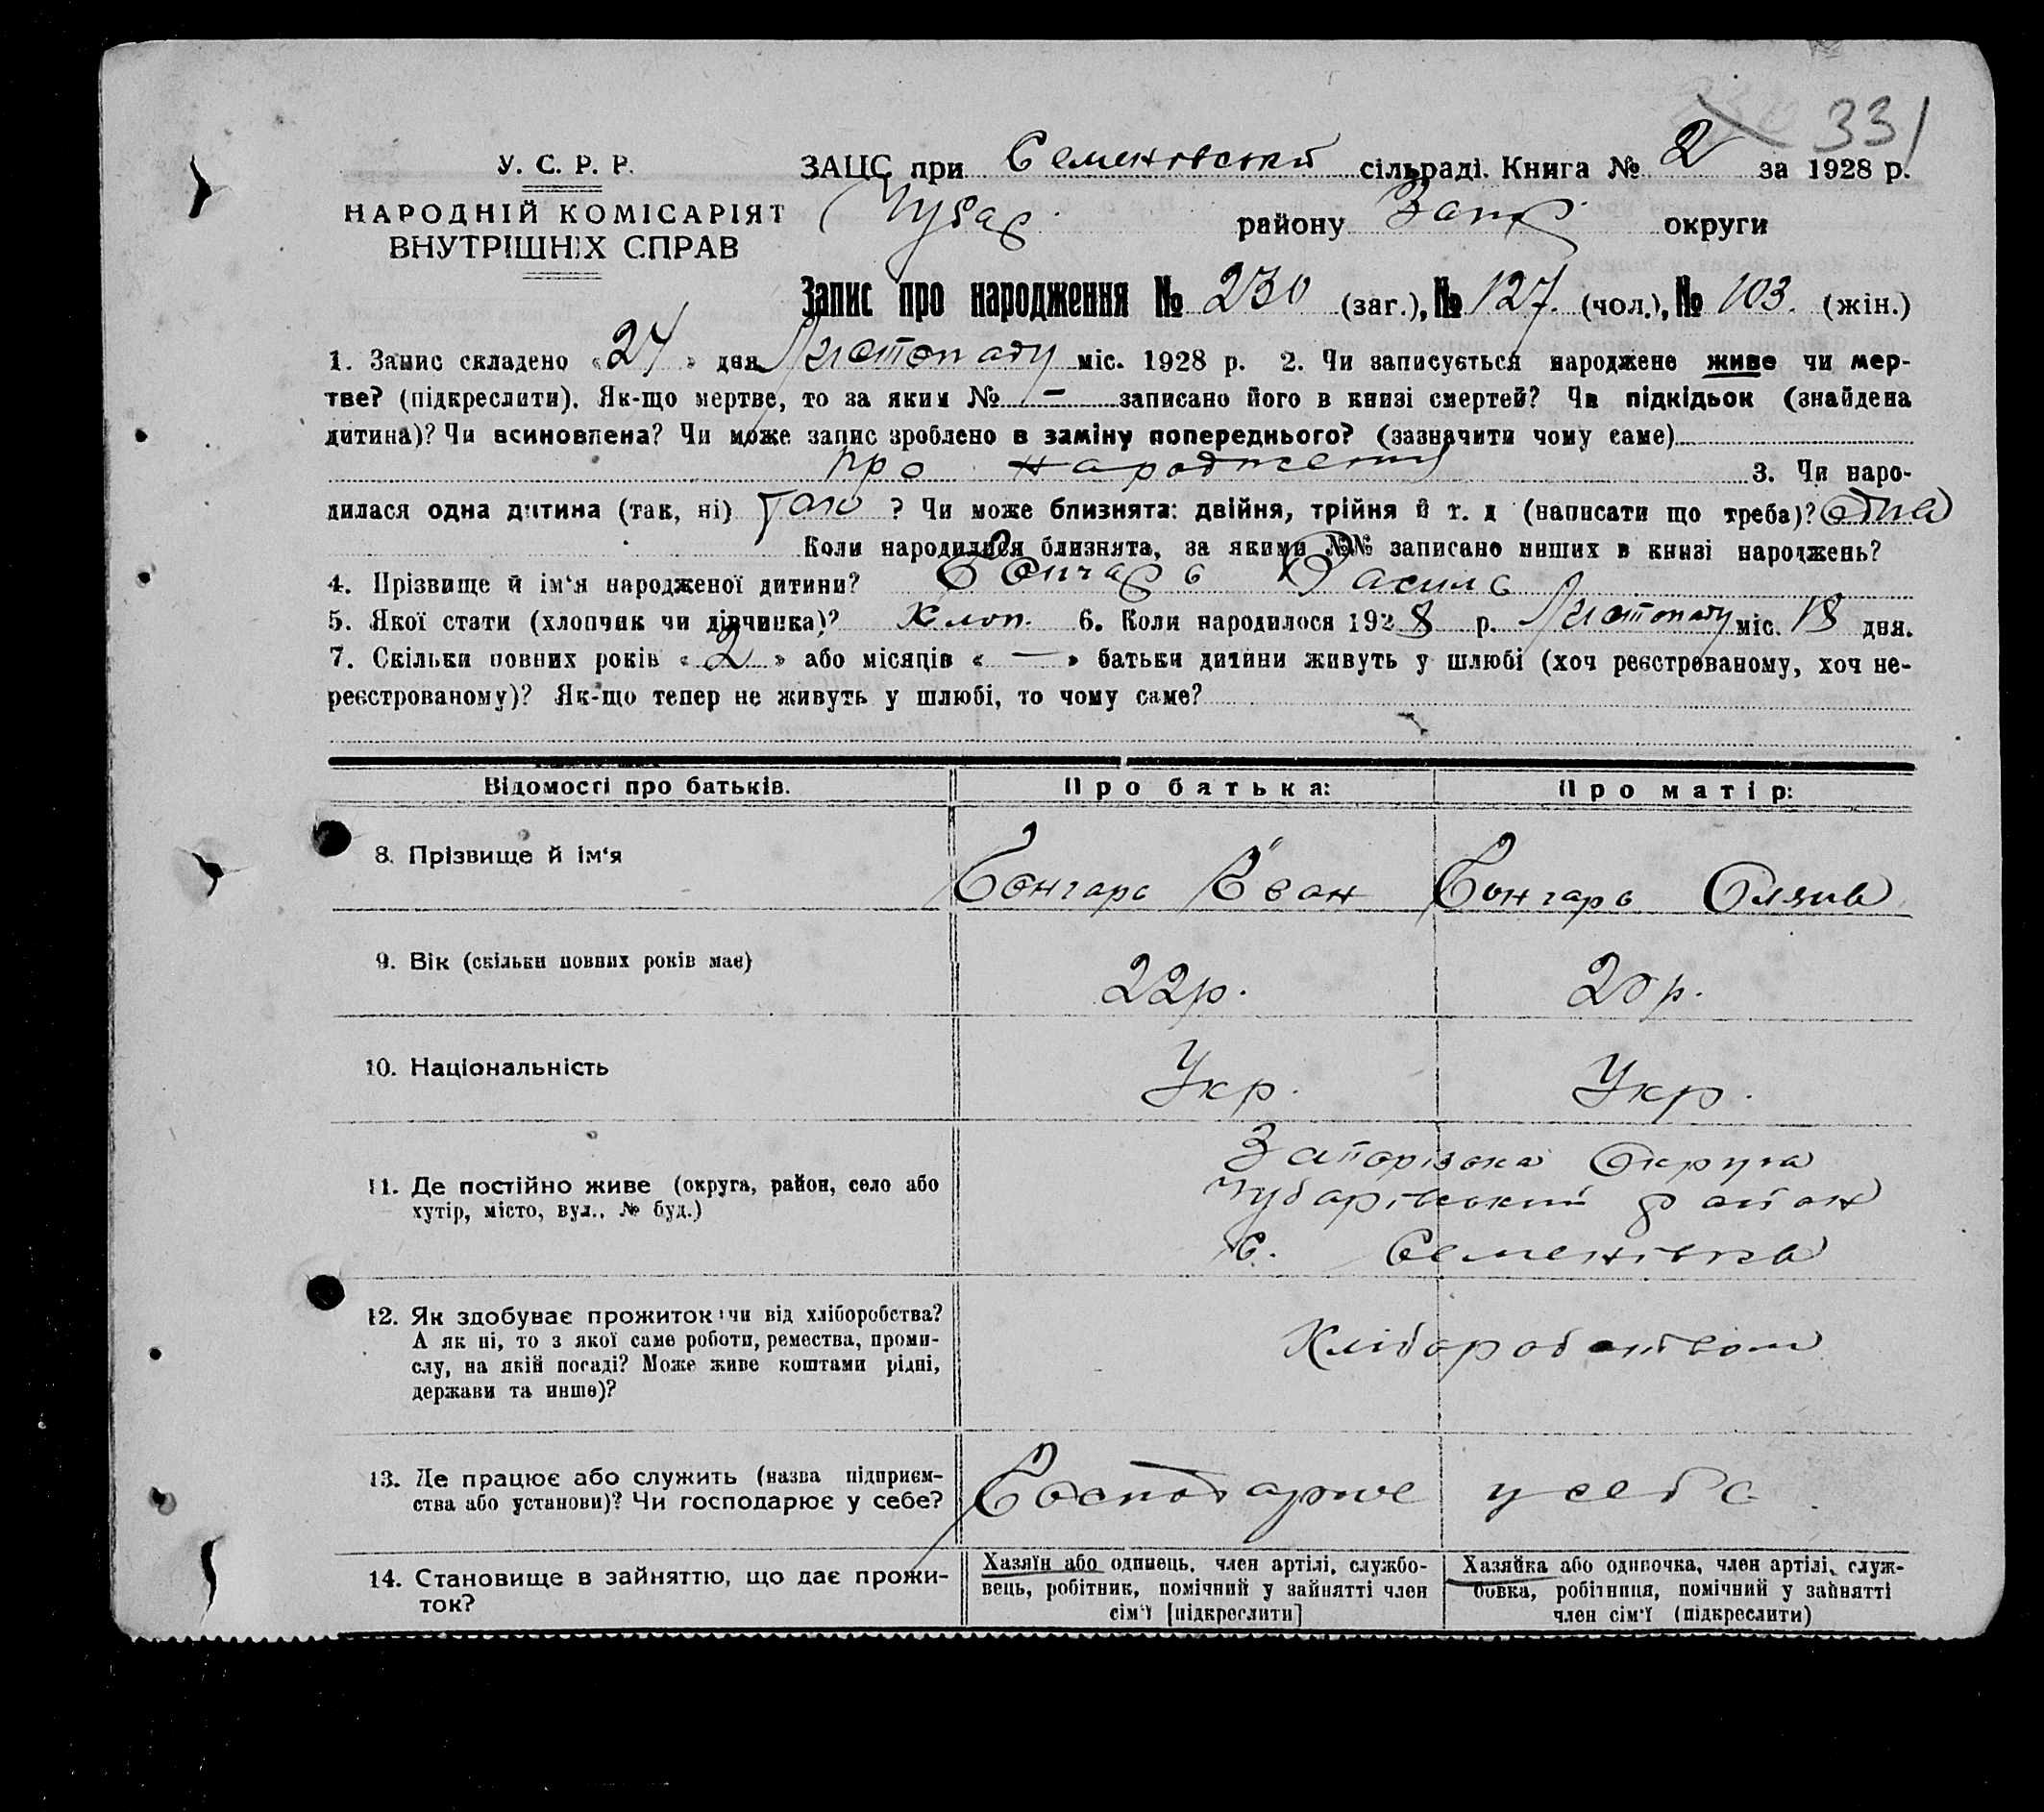 331
У. С. Р. Р.
ЗАЦС при Семенівській сільраді. Книга № 2 за 1928 р.
НАРОДНІЙ КОМІСАРІЯТ
ВНУТРІШНІХ СПРАВ
Чубар району Запор округи
Запис про народження № 230 (заг.), № 127. (чол.), № 103. (жін.)
1. Запис складено «24» дня Листопаду міс. 1928 р. 2. Чи записується народжене живе чи мер-
тве? (підкреслити). Як-що мертве, то за яким № — записано його в книзі смертей? Чи підкідьок (знайдена
дитина)? Чи всиновлена? Чи може запис зроблено в заміну попереднього? (зазначити чому саме)
про народження 3. Чи наро-
дилася одна дитина (так, ні) ? Чи може близнята: двійня, трійня й т. д (написати що треба)? одна
Коли народилися близнята, за якими №№ записано инших в книзі народжень?
4. Прізвище й ім‘я народженої дитини? Гончарь Василь
5. Якої стати (хлопчик чи дівчинка)? Хлоп. 6. Коли народилося 1928 р. Листопаду міс. 18 дня.
7. Скільки повних років «2» або місяців «—» батьки дитини живуть у шлюбі (хоч реєстрованому, хоч не-
реєстрованому)? Як-що тепер не живуть у шлюбі, то чому саме?
Відомості про батьків. Про батька: Про матір:
8. Прізвище й ім‘я Гончарь Іван Гончарь
9. Вік (скільки повних років має) 22р. 20р.
10. Національність Укр. Укр.
Запорізька Округа
11. Де постійно живе (округа, район, село або
хутір, місто, вул., № буд.)
Чубарівський район
с. Семенівка
12. Як здобуває прожиток: чи від хліборобства?
А як ні, то з якої саме роботи, ремества, проми-
слу, на якій посаді? Може живе коштами рідні,
держави та инше)?
Хліборобством
13. Де працює або служить (назва підприєм-
ства або установи)? Чи господарює у себе?
Господарює у себе
14. Становище в зайняттю, що дає прожи-
ток?
Хазяїн або одинець, член артілі, службо-
вець, робітник, помічний у зайнятті член
сім‘ї [підкреслити]
Хазяйка або одиночка, член артілі, служ-
бовка, робітниця, помічний у зайнятті
член сім‘ї (підкреслити)